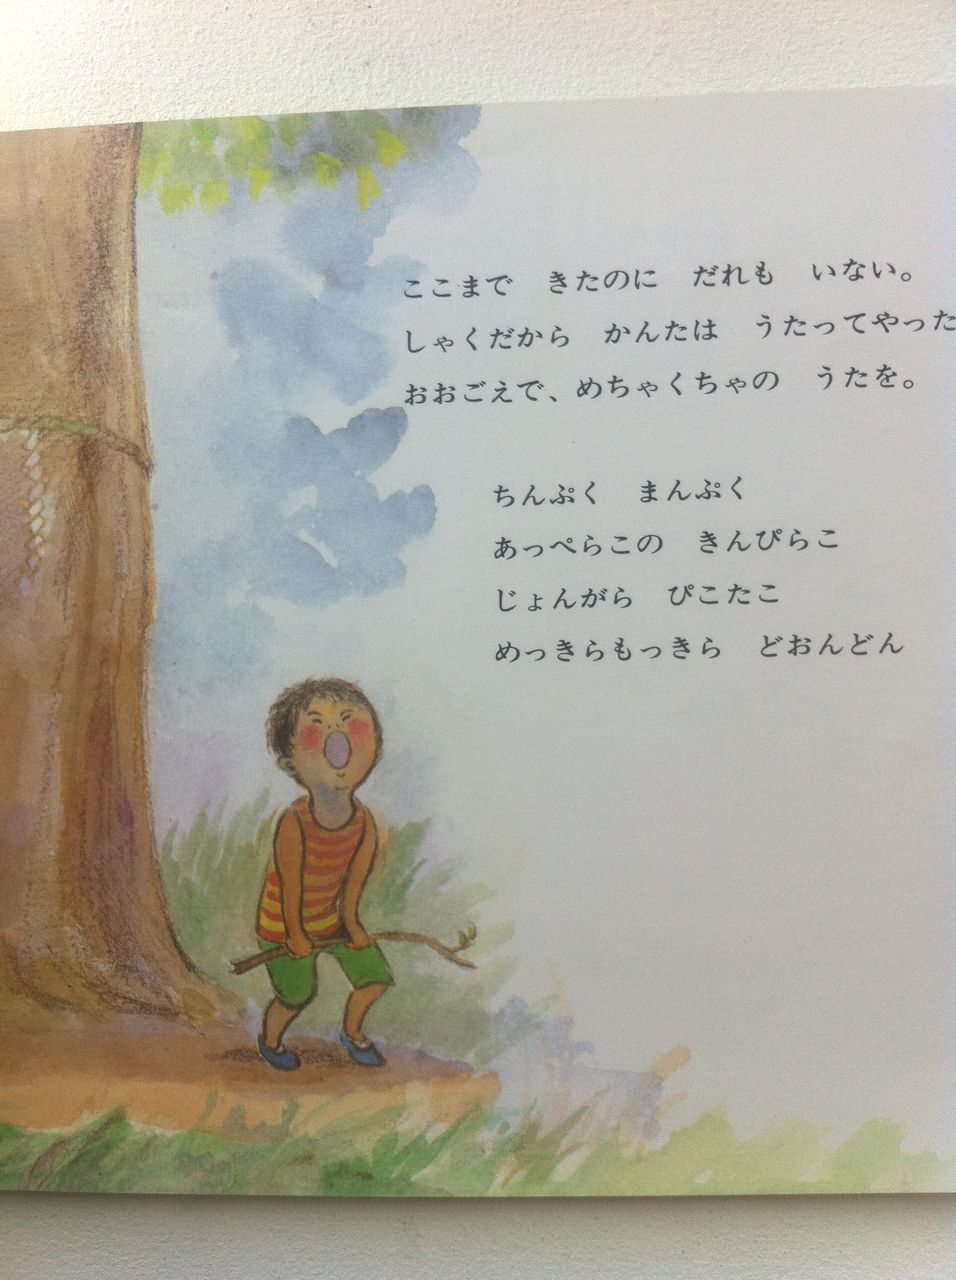 ここまで　きたのに　だれも　いない。
しゃくだから　かんたは　うたってやった
おおごえで、めちゃくちゃの　うたを。
ちんぷく　まんぷく
あっぺらこの　きんぴらこ
じょんがら　ぴこたこ
めっきらもっきら　どおんどん